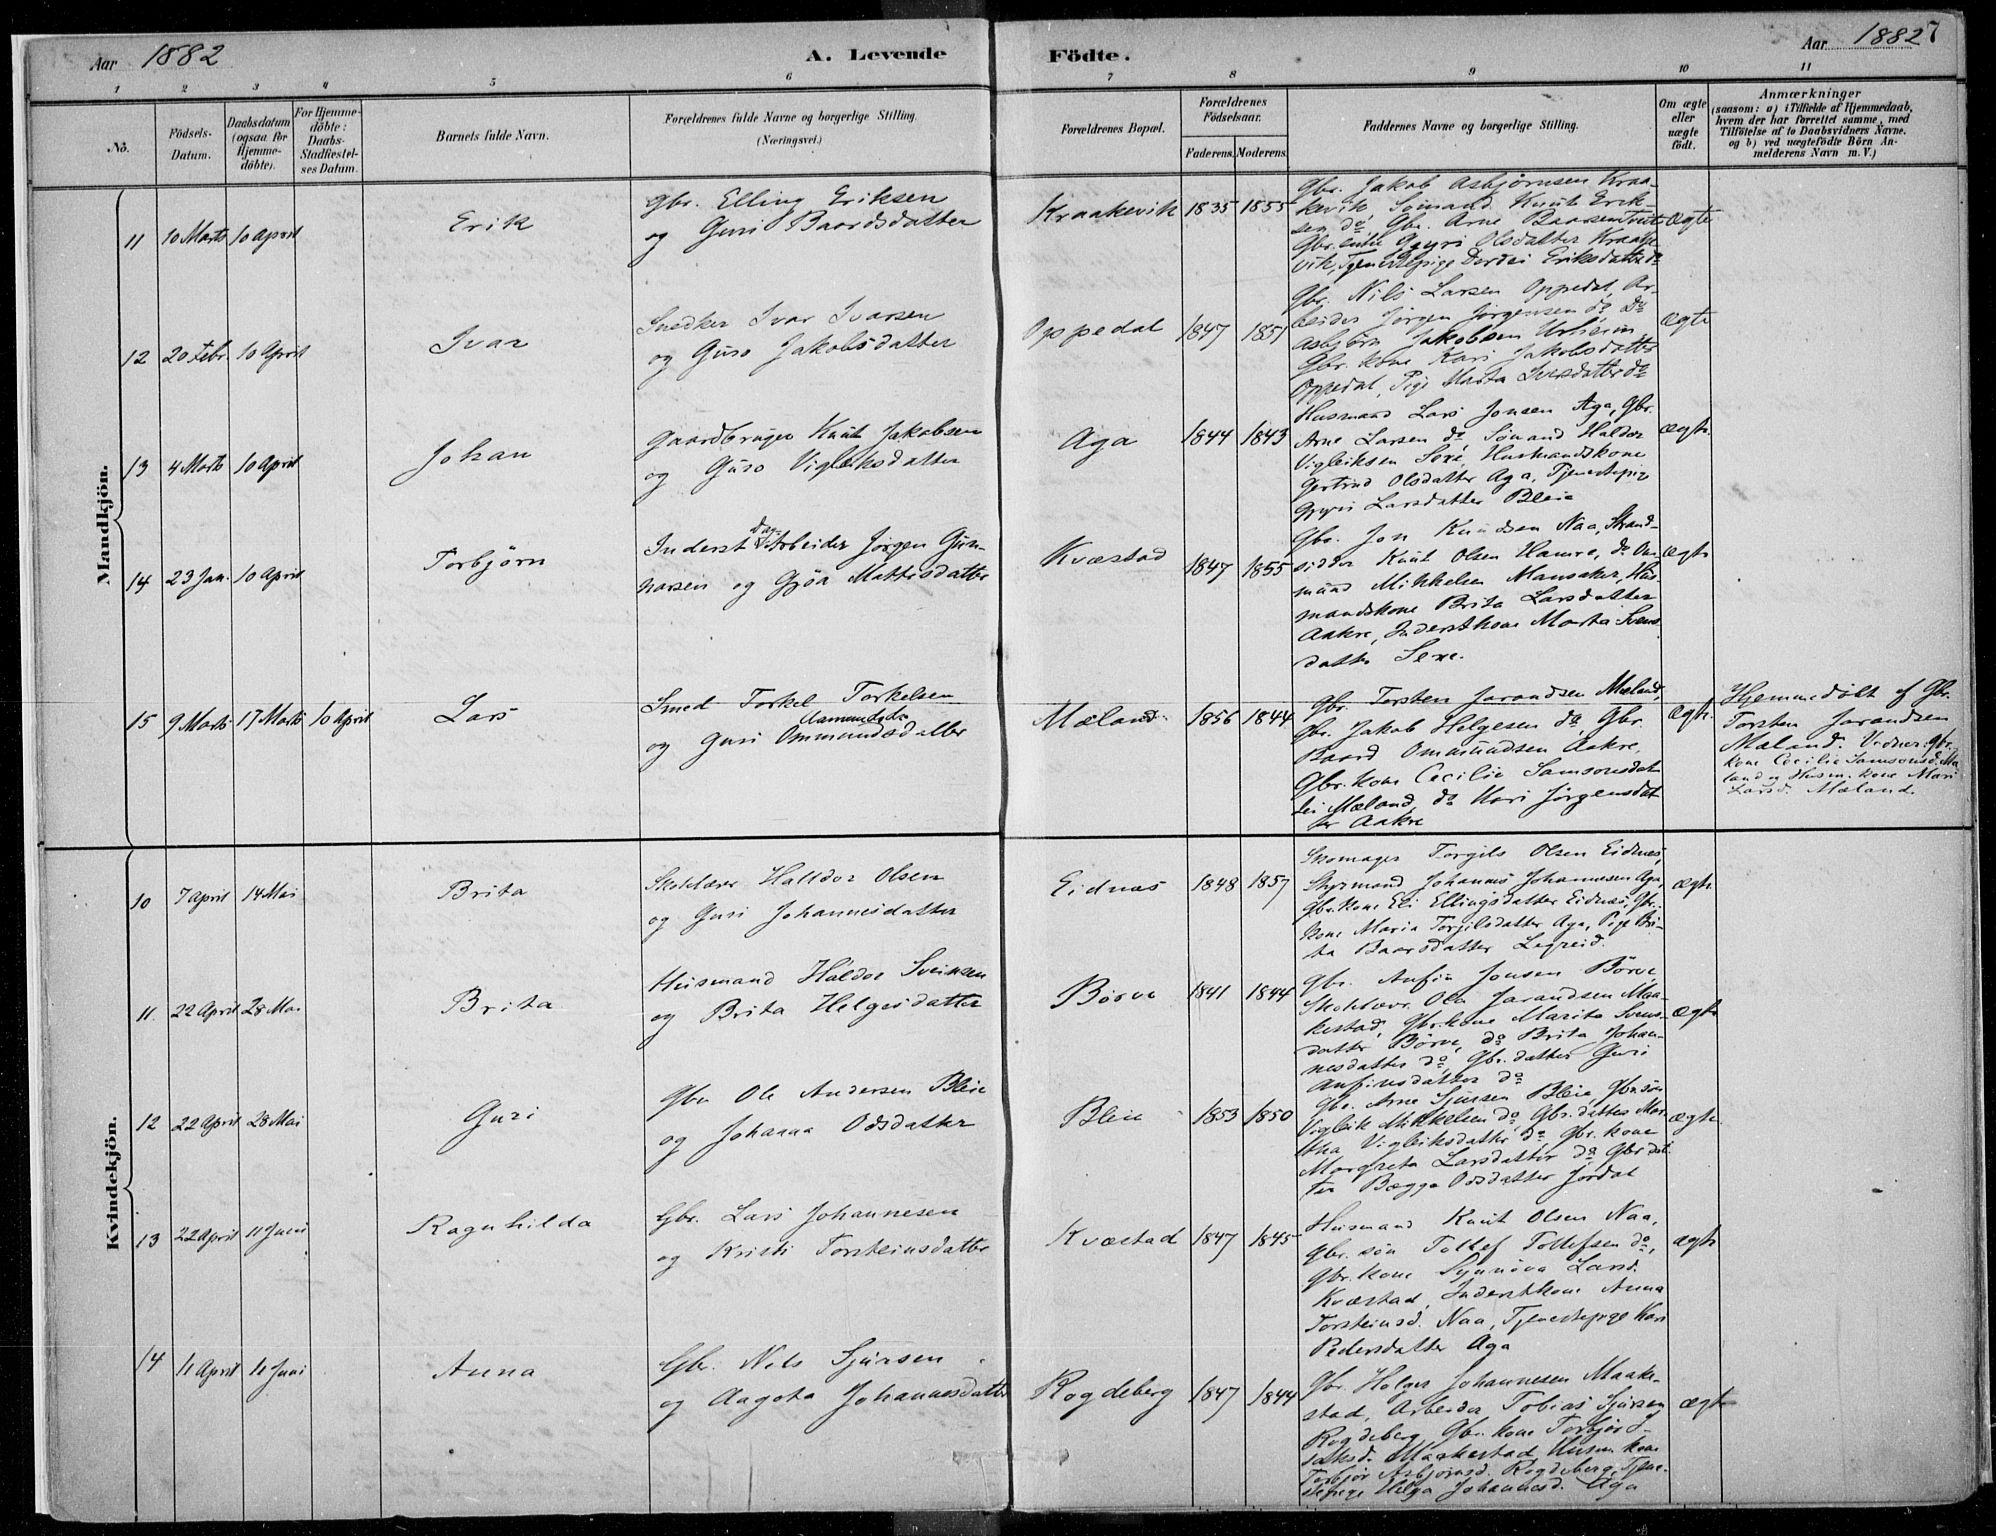 Aar 1882
A. Levende
Födte.
Aar 1882
7
1 2 3 4 5 6 7 8 9 10 11
No.
Födsels-
Datum.
Daabsdatum
(ogsaa for
Hjemme-
döbte).
For Hjemme-
döbte:
Daabs-
Stadfæstel-
ses Datum.
Barnets fulde Navn.
Forældrenes fulde Navne og borgerlige Stilling.
(Næringsvei.)
Forældrenes Bopæl.
Forældrenes
Födselsaar.
Faderens.
Moderens.
Faddernes Navne og borgerlige Stilling.
Om ægte
eller
uægte
födt.
Anmærkninger
(saasom: a) i Tilfælde af Hjemmedaab,
hvem der har forrettet samme, med
Tilföielse af to Daabsvidners Navne.
og b) ved uægtefödte Börn An-
melderens Navn m. V.)
Mandkjön.
11 10 Marts 10 April
Erik
Gbr. Elling Eriksen
og Guri Baardsdatter
Kraakevik 1835 1855
Gbr. Jakob Asbjørnsen Kraa-
kevik, Sømand Knut Erik-
sen do, Gbr. Arne Baarsen Tveit
Gbr.enke Gyri Olsdatter Kraake-
vik, Tjenestepige Eriksdatter do
ægte
12 20 Febr. 10 April
Ivar
Snedker Ivar Ivarsen
og Guro Jakobsdatter
Oppedal 1847 1851
Gbr. Nils Larsen Oppedal, Ar-
beider Jørgen Jørgensen do, Do
Asbjørn Jakobsen Urheim
Gbr. kone Kari Jakobsdatter
Oppedal, Pige Marta Iversdatter do
ægte
13 4 Marts 10 April
Johan
Gaardbruger Knut Jakobsen
og Guro Vigleiksdatter
Aga 1844 1843
Husmand Lars Jonsen Aga, Gbr.
Arne Larsen do, Sømand Haldor
Vigleiksen Sexe, Husmandskone
Gertrud Olsdatter Aga, Tjenestepige
Gyri Larsdatter Bleie
ægte
14 23 Jan. 10 April
Torbjørn
Inderst Dag-Arbeider Jørgen Gun-
narsen og Gjøa Mattisdatter
Kvæstad 1847 1855
Gbr. Jon Knudsen Naa, Strand-
sidder Knut Olsen Hamre, do Om-
mund Mikkelsen Mansaker, Hus-
mandskone Brita Larsdatter
Aakre, Inderstkone Marta Svens-
datter Sexe.
ægte
15 9 Marts 17 Marts 10 April
Lars
Smed Torkel Torkelsen
Aamundsdr
og Guri Ommundsdatter
Mæland 1856 1844
Gbr. Torsten Jarandsen Mæland,
Gbr. Jakob Helgesen do, Gbr.
Baard Ommundsen Aakre,
Gbr. kone Cecilie Samsonsdat-
ter Mæland, do Kari Jørgensdat-
ter Aakre
ægte
Hjemmedøbt af Gbr.
Torsten Jarandsen
Mæland. Vidner: gbr.
kone Cecilie Samsonsd. Mæ-
land og Husm. kone Mari
Larsd. Mæland.
Kvindekjön.
10 7 April 14 Mai
Brita
Skolelærer Halldor Olsen
og Guri Johannesdatter
Eidnæs 1848 1857
Skomager Torgils Olsen Eidnæs,
Styrmand Johannes Johannesen Aga,
Gbr. kone Eli Ellingsdatter Eidnæs, Gbr.
kone Maria Torgilsdatter Aga, Pige Bri-
ta Baarsdatter Legreid.
ægte
11 22 April 28 Mai
Brita
Husmand Haldor Sveinsen
og Brita Helgesdatter
Børve 1841 1844
Gbr. Anfin Jonsen Børve,
Skolelærer Ola Jarandsen Maa-
kestad, Gbr. kone Marita Svens-
datter Børve, do Brita Johan-
nesdatter do, Gbr. datter Guri
Anfinsdatter do
ægte
12 22 April 28 Mai
Guri
Gbr. Ole Andersen Bleie
og Johanna Odsdatter
Bleie 1853 1850
Gbr. Arne Sjursen Bleie, Gbr. søn
Vigleik Mikkelsen do, Gbr. datter Mar-
tha Vigleiksdatter do, Gbr. kone
Margreta Larsdatter do, Gbr. dat-
ter Bægga Odsdatter Jordal
ægte
13 22 April 11 Juni
Ragnhilda
Gbr. Lars Johannesen
og Kristi Torsteinsdatter
Kvæstad 1847 1845
Husmand Knut Olsen Naa,
Gbr. søn Tollef Tollefsen do,
Gbr. kone Synnøva Larsd.
Kvæstad, Inderstkone Anna
Torsteinsd. Naa, Tjenestepige Kari
Pedersdatter Aga
ægte
14 11 April 11 Juni
Anna
Gbr. Nils Sjursen
og Aagota Johannesdatter
Rogdeberg 1847 1844
Gbr. Helge Johannesen Maake-
stad, Arbeider Tobias Sjursen
Rogdeberg, Gbr. kone Torbjør J-
saksd. Maakestad, Husm. kone
Torbjør Asbjørnsd. Rogdeberg, Tjene-
stepige Helga Johannesd. Aga
ægte